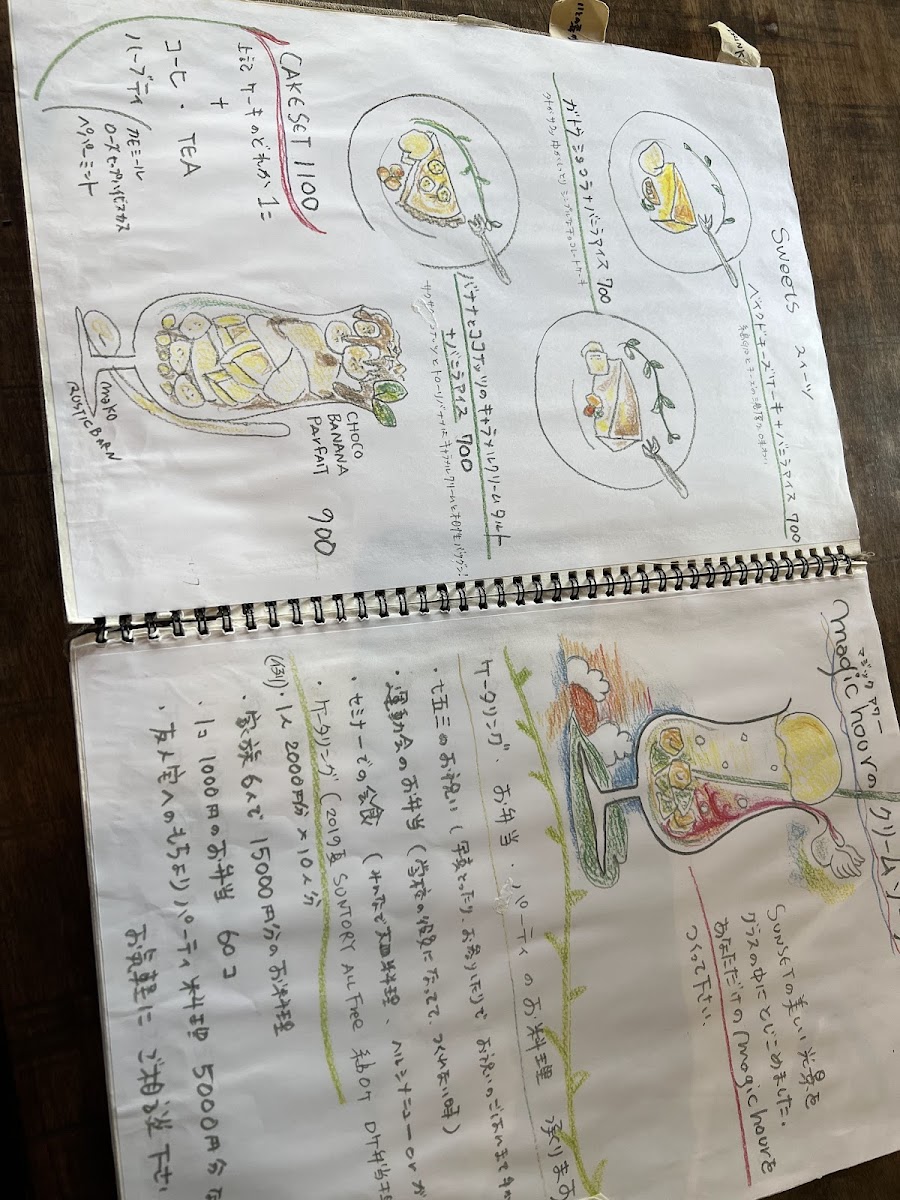 Sweets スイーツ
ベイクドチーズケーキ+バニラアイス 700
ガトウショコラ+バニラアイス 700
バナナとココナッツのキャラメルクリームタルト
+バニラアイス 700
CHOCO
BANANA
PARFAIT 900
MOKO
RUSTIC BARN
CAKE SET 1100
上記ケーキのどれか1コ
+
コーヒー・TEA
ハーブティ
カモミール
ペパーミント
マジックアワー
magic hourの クリームソ
SUNSETの美しい光景を
グラスの中にとじこめました。
あなただけのmagic hourを
つくって下さい
ケータリング、お弁当・パーティのお料理 承ります
・七五三のお祝い(写真とったり、お参りしたりで お祝いのごはんまで
・運動会のお弁当(学校の役員になってて、つくれない時)
・セミナーでの会食(みんなで大皿料理、ヘルシーメニュー or が
・ケータリング(2019夏 SUNTORY ALL FREE 秋ロケ ロケ弁当
(例)・1人 2000円分×10人分
・家族6人で 15000円分のお料理
・1コ 1000円のお弁当 60コ
・友人宅へのもちよりパーティ料理 5000円分
お気軽に ご相談下さい